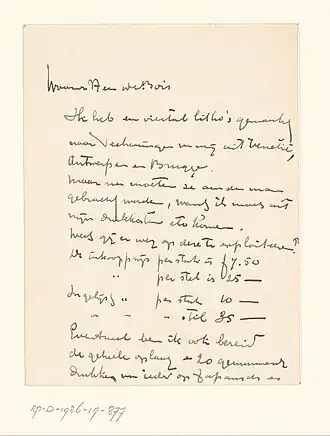 Waarde Heer de Bois
Ik heb een viertal litho's gemaakt
naar teekeningen van mij uit Venetië,
Antwerpen en Brugge.
Maar nu moeten ze aan den man
gebracht worden, want ik moet uit
mijn drukkosten etc komen.
Weet gij er weg op deze te exploiteeren?
De inkoopprijs per stuk is f 7.50
" per stel is 25 —
" per stuk 10 —
" " " stel 35 —
Eventueel ben ik ook bereid
de geheele oplaag à 20 genummerde
drukken van ieder op Japansch en
RP-D-1926-19-877